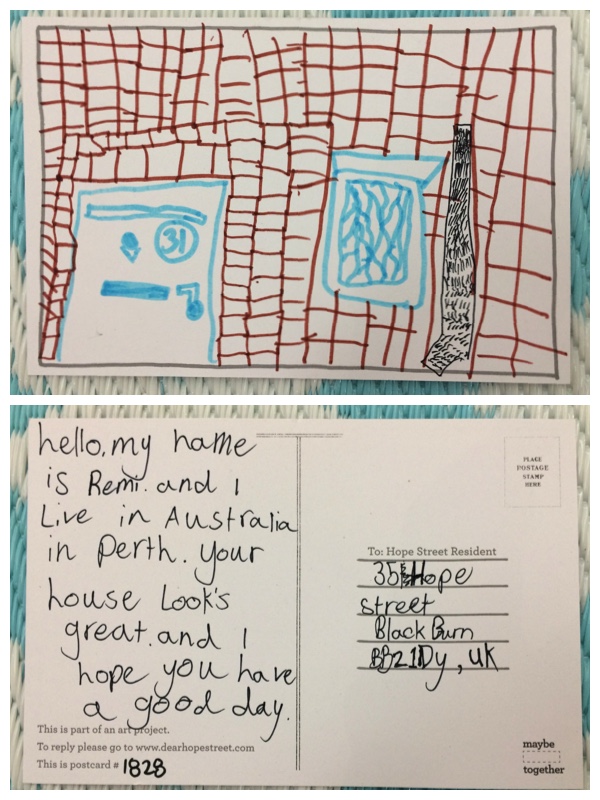 31
hello. my name
is Remi. and I
Live in Australia
in Perth. your
house Look's
great. and I
hope you have
a good day.
This is part of an art project.
To reply please go to www.dearhopestreet.com
This is postcard # 1828
PLACE
POSTAGE
STAMP
HERE
To: Hope Street Resident
35 Hope
street
Black Burn
BB2 1Dy, UK
maybe
together